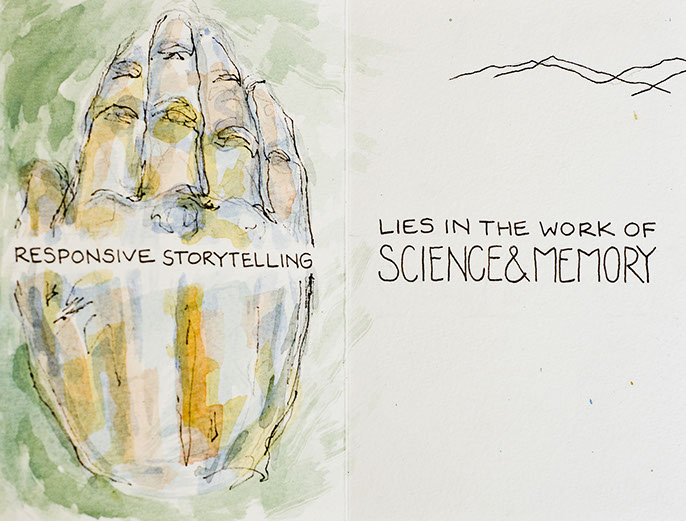 RESPONSIVE STORYTELLING
LIES IN THE WORK OF
SCIENCE&MEMORY